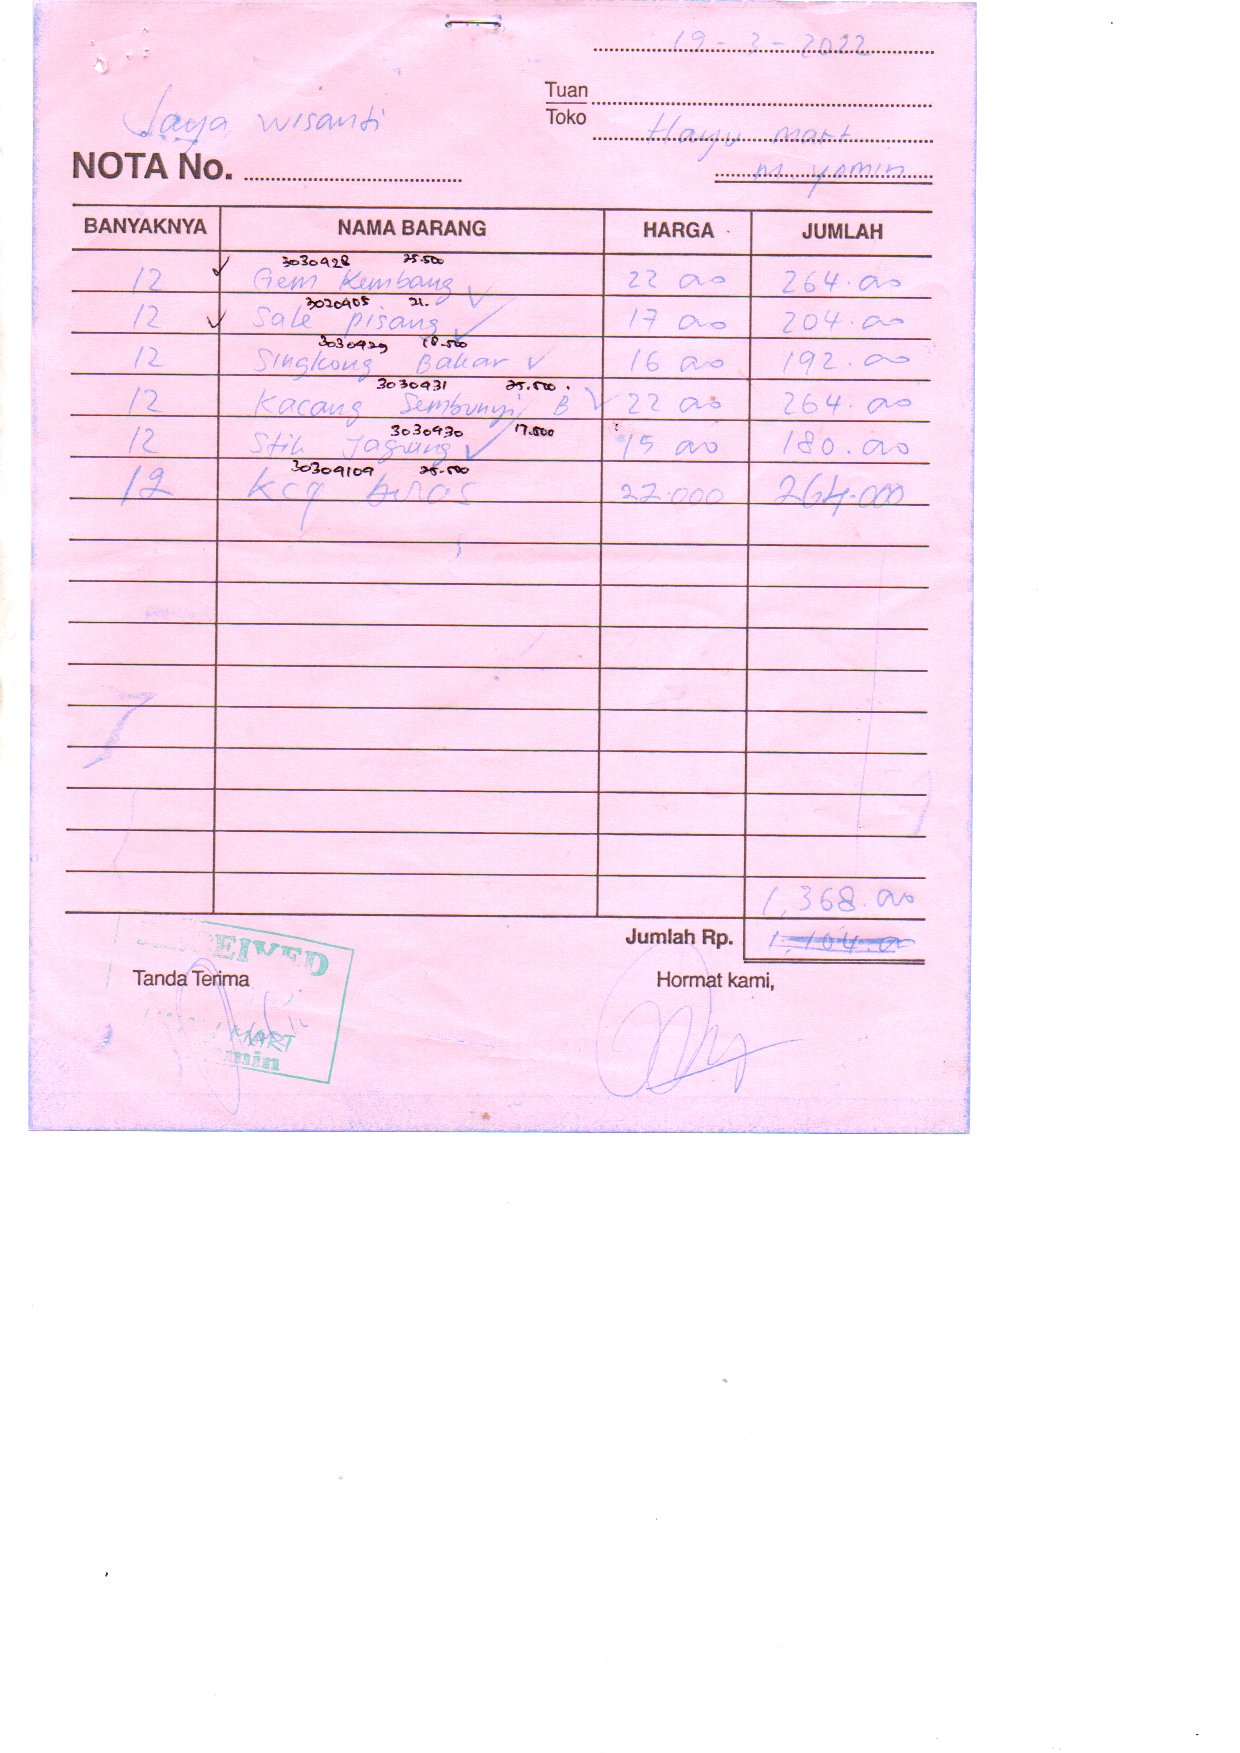 19-2-2022
Tuan
Toko
Hayu mart
M. Yamin
Jaya Wisanti
NOTA No.
BANYAKNYA NAMA BARANG HARGA JUMLAH
3030928 25.500
12 Gem Kembang 22 000 264.000
3020905 21.
12 Sale pisang 17 000 204.000
3030929 18.500
12 Singkong Bakar 16 000 192.000
3030931 25.500
12 Kacang Sembunyi B 22 000 264.000
3030930 17.500
12 Stik Jagung 15 000 180.000
30309109 25.500
12 kcg beras 22.000 264.000
1,368.000
Jumlah Rp. 1,104.000
RECEIVED
Tanda Terima Hormat kami,
MART